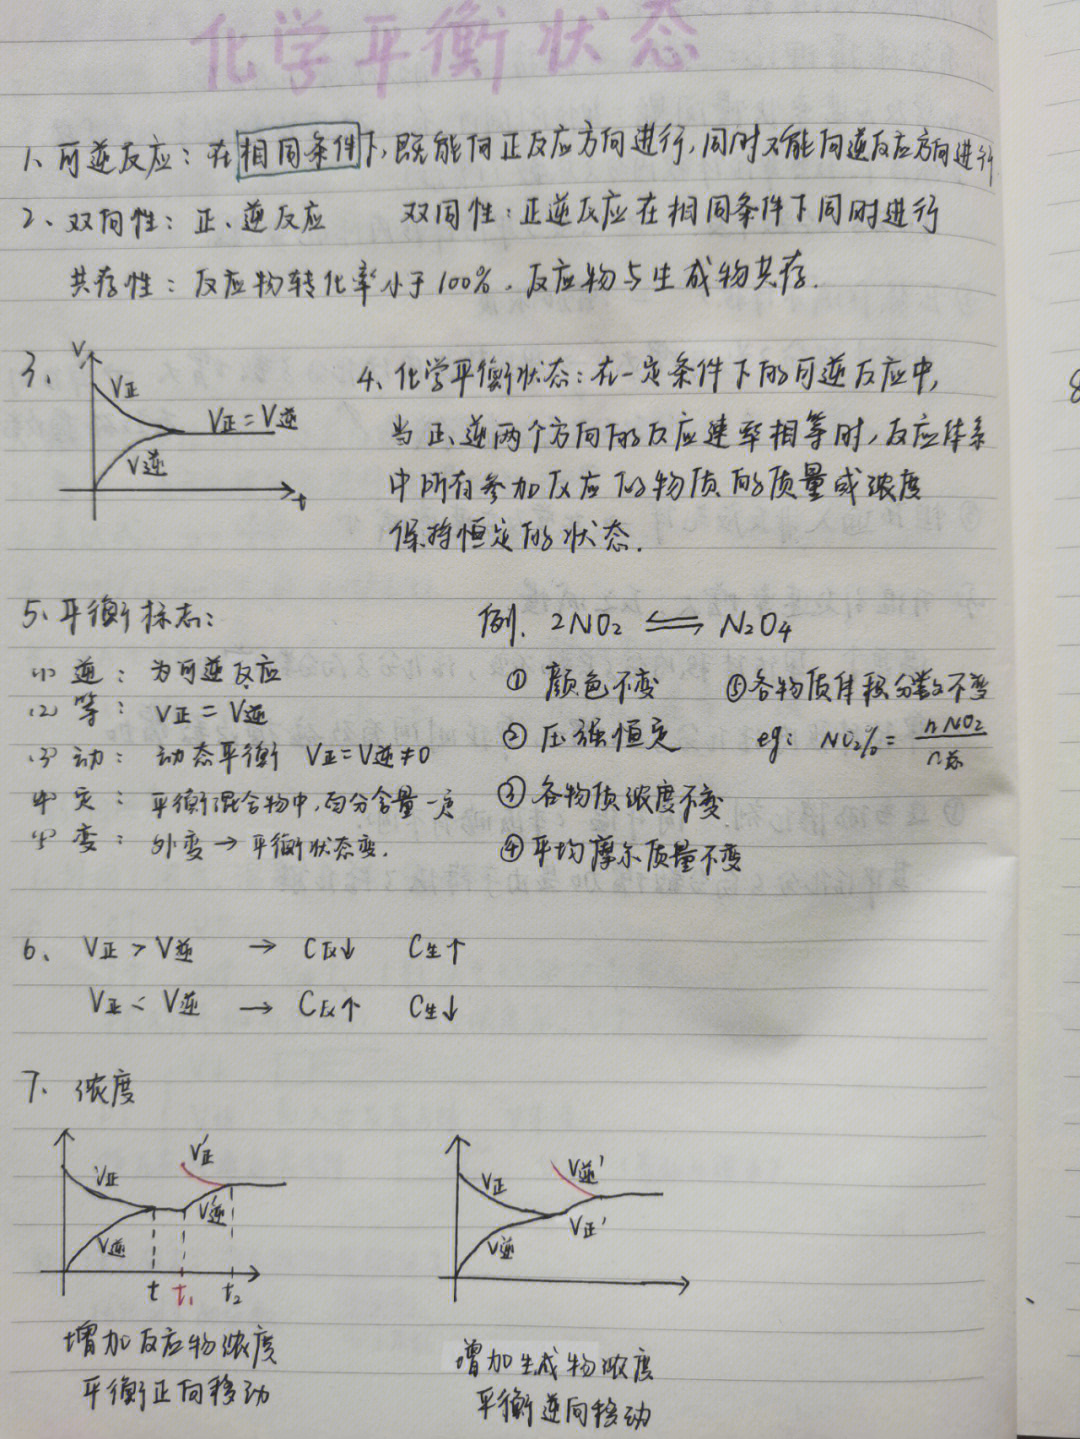 化学平衡状态
1、可逆反应：在相同条件下，既能向正反应方向进行，同时又能向逆反应方向进行
2、双向性：正、逆反应 双同性：正逆反应在相同条件下同时进行
共存性：反应物转化率小于100%，反应物与生成物共存.
3、
V
V正
V正=V逆
V逆
t
4、化学平衡状态：在一定条件下的可逆反应中，
当正、逆两个方向的反应速率相等时，反应体系
中所有参加反应的物质的质量或浓度
保持恒定的状态.
5、平衡标志：
(1) 逆：为可逆反应
(2) 等：V正=V逆
(3) 动：动态平衡 V正=V逆≠0
(4) 定：平衡混合物中，百分含量一定
(5) 变：外变→平衡状态变.
例. 2NO2 ⇌ N2O4
① 颜色不变 ⑤各物质体积分数不变
② 压强恒定 eg: NO2%= nNO2/n总
③ 各物质浓度不变
④ 平均摩尔质量不变
6、V正>V逆 → C反↓ C生↑
V正<V逆 → C反↑ C生↓
7、浓度
V正
V'正
V逆
V'逆
t t1 t2
增加反应物浓度
平衡正向移动
V正
V逆'
V逆
V正'
增加生成物浓度
平衡逆向移动